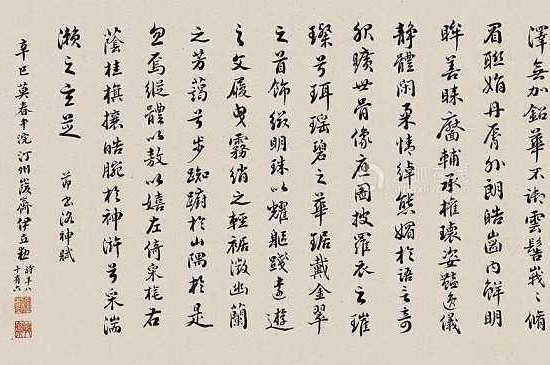 澤無加鉛華不御雲髻峩〻修
眉聯娟丹脣外朗皓齒內鮮明
眸善睞靨輔承權瓌姿豔逸儀
靜體閑柔情綽態媚於語言奇
服曠世骨像應圖披羅衣之璀
璨兮珥瑶碧之華琚戴金翠
之首飾綴明珠以耀軀踐遠遊
之文履曳霧綃之輕裾微幽蘭
之芳藹兮步踟躕於山隅於是
忽焉縱體以敖以嬉左倚采旄右
蔭桂旗攘皓腕於神滸兮采湍
瀨之玄芝
節書洛神賦
辛巳莫春下浣汀州峻齋伊立勳
時年八
十有六